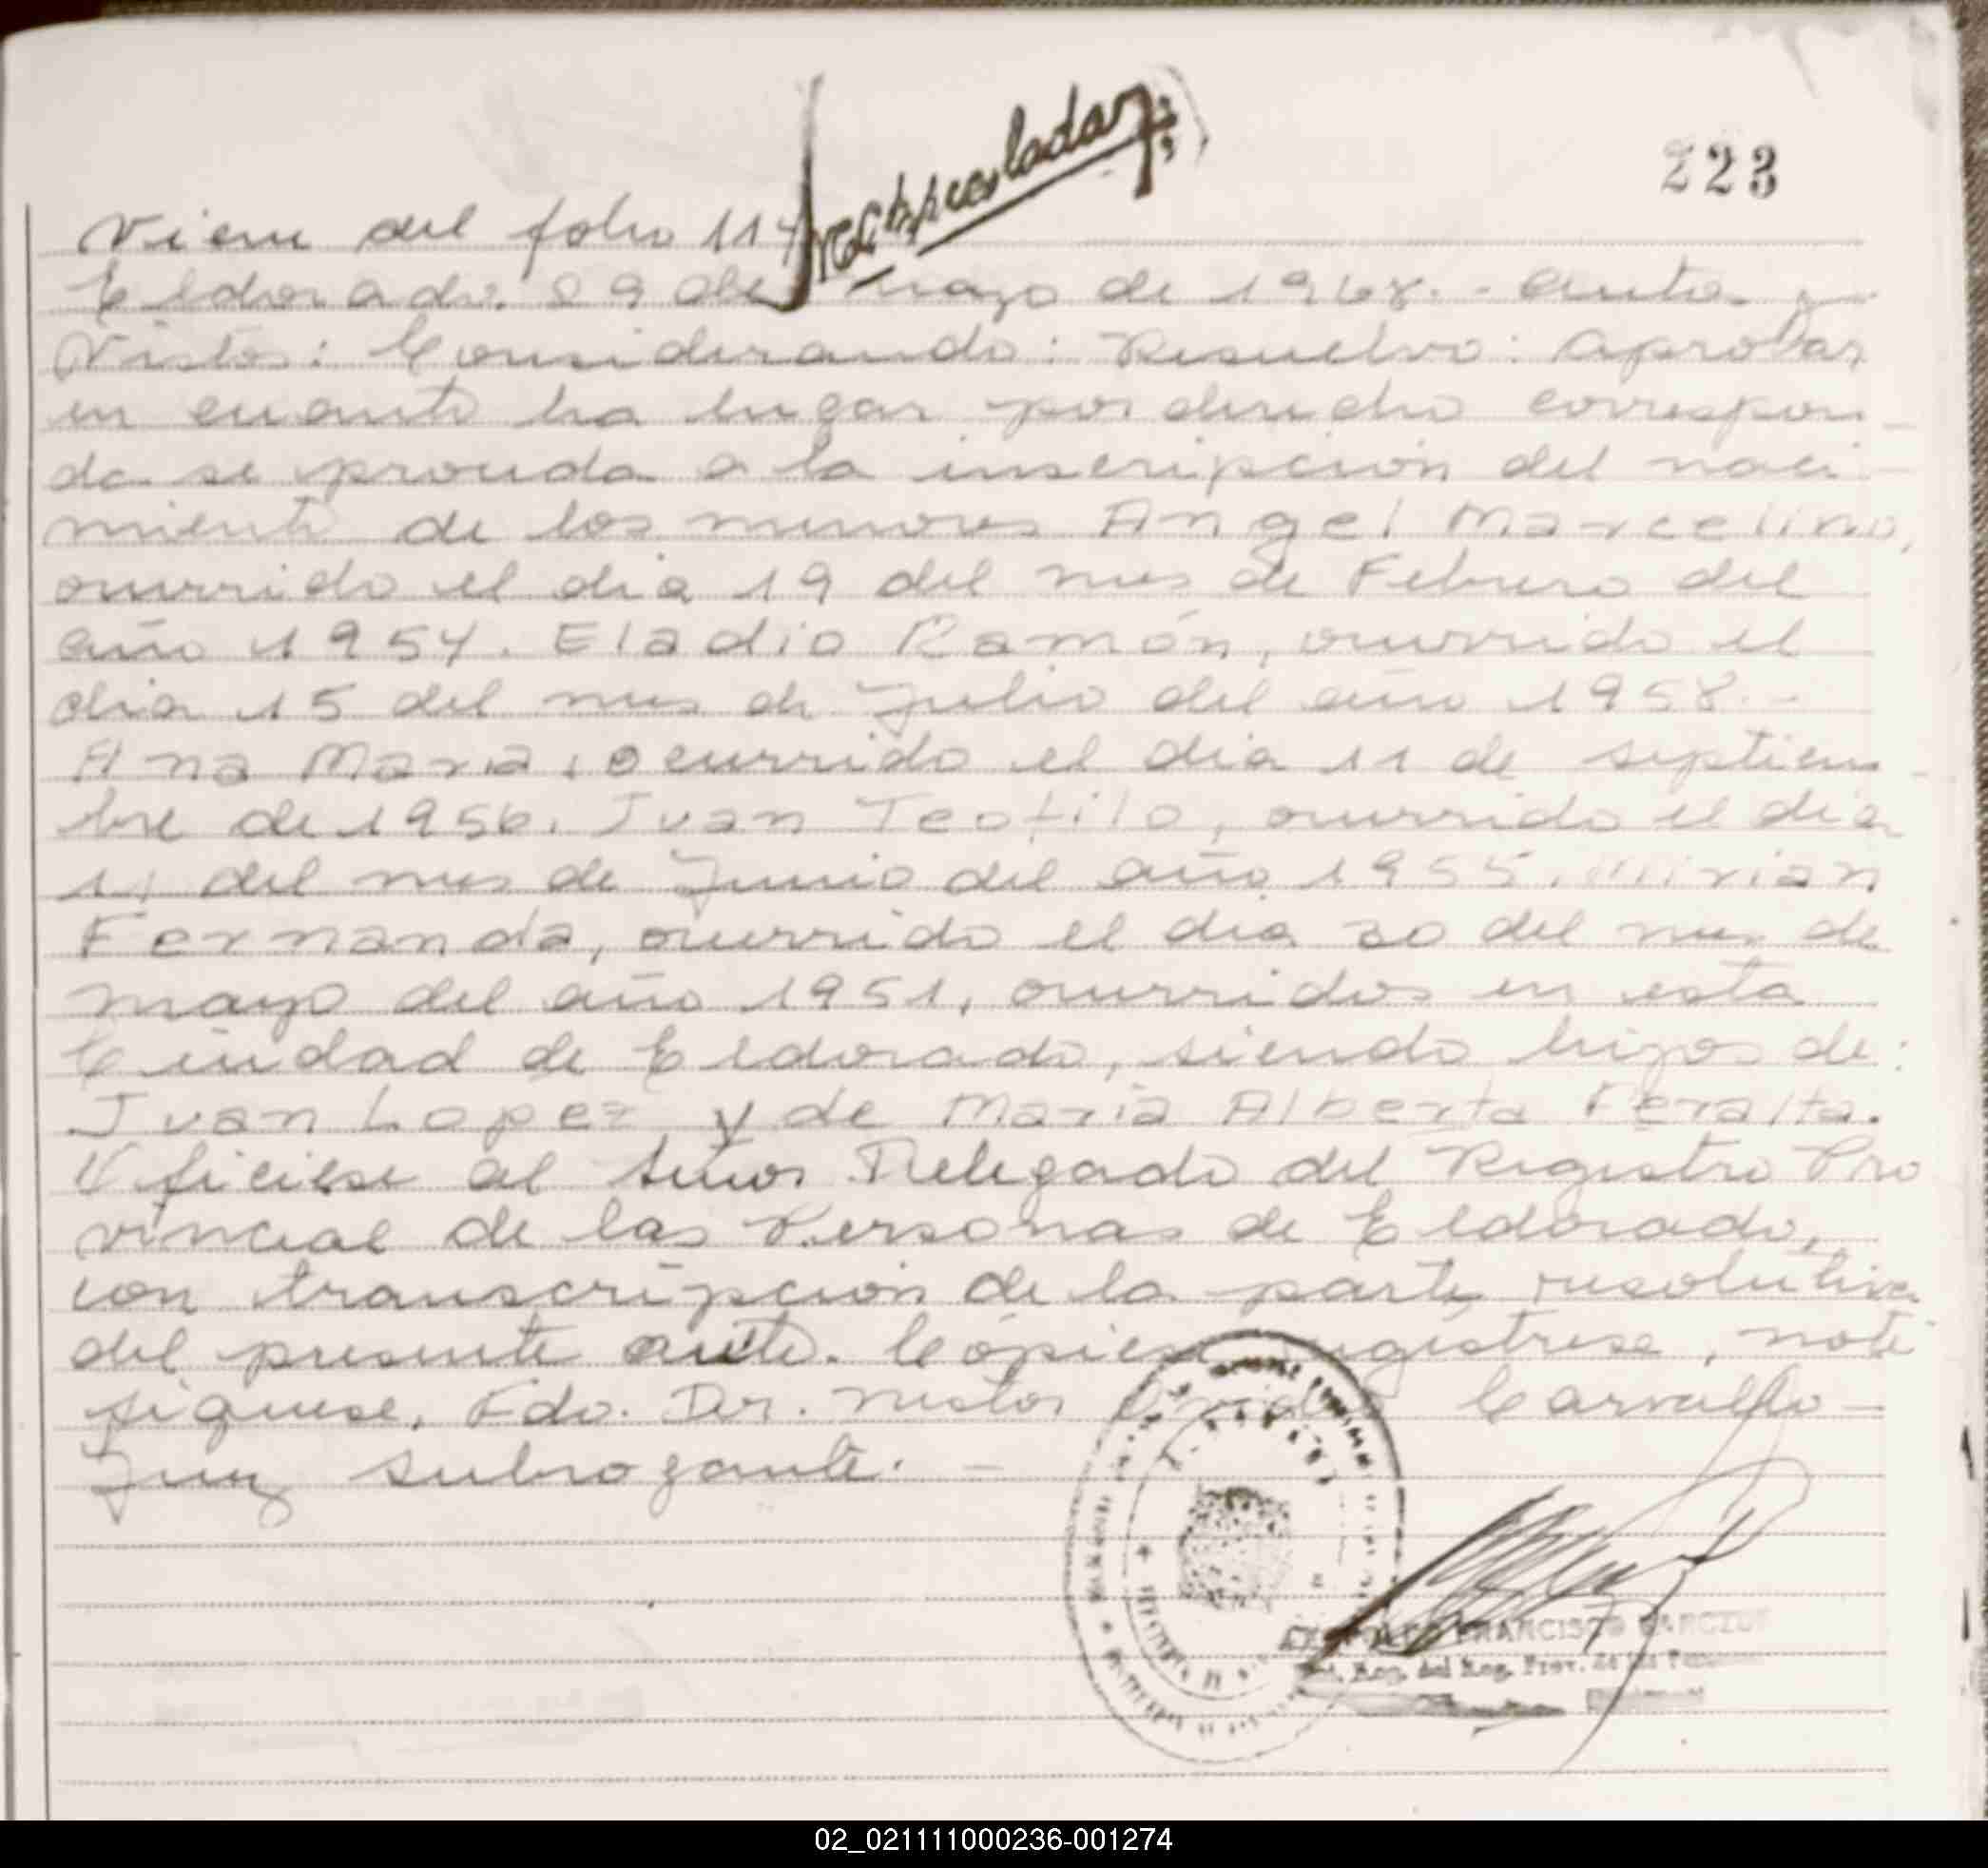 223
Viene del folio 114
Eldorado. 29 de mayo de 1968.- Autos y
Vistos: Considerando: Resuelvo: Aprobar
en cuanto ha lugar por derecho correspon-
da se proceda a la inscripción del naci-
miento de los menores Angel Marcelino,
ocurrido el dia 19 del mes de Febrero del
año 1954. Eladio Ramón, ocurrido el
dia 15 del mes de Julio del año 1958.-
Ana Maria, ocurrido el dia 11 de septiem-
bre de 1956. Juan Teofilo, ocurrido el dia
11 del mes de Junio del año 1955. Mirian
Fernanda, ocurrido el dia 30 del mes de
mayo del año 1951, ocurridos en esta
Ciudad de Eldorado, siendo hijos de:
Juan Lopez y de Maria Alberta Peralta.
Oficiese al Señor Delegado del Registro Pro
vincial de las Personas de Eldorado,
con transcripción de la parte resolutiva
del presente auto. Cópiese registrese, noti
fiquese. Fdo. Dr. Nestor Carvallo-
Juez subrogante.-
FRANCISCO
Reg. del Reg. Prov. de las
02_021111000236-001274